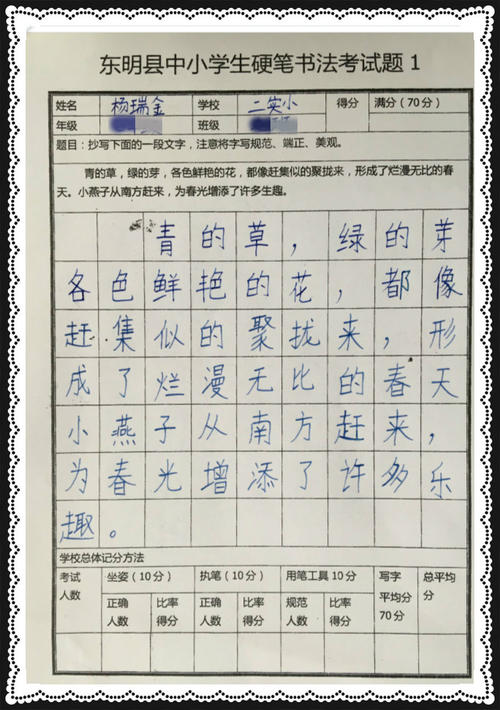 东明县中小学生硬笔书法考试题 1
姓名 杨瑞金 学校 二实小 得分 满分（70 分）
年级 班级
题目：抄写下面的一段文字，注意将字写规范、端正、美观。
青的草，绿的芽，各色鲜艳的花，都像赶集似的聚拢来，形成了烂漫无比的春
天。小燕子从南方赶来，为春光增添了许多生趣。
青的草，绿的芽
各色鲜艳的花，都像
赶集似的聚拢来，形
成了烂漫无比的春天
小燕子从南方赶来，
为春光增添了许多乐
趣。
学校总体记分方法
考试人数 坐姿（10 分） 执笔（10 分） 用笔工具 10 分 写字平均分 70 分 总平均分
正确人数 比率得分 正确人数 比率得分 规范人数 比率得分